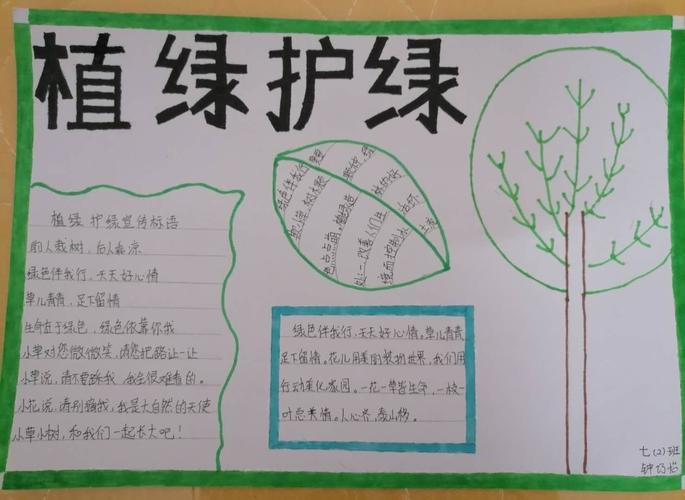 植绿护绿
植绿 护绿宣传标语
前人栽树，后人乘凉
绿色伴我行，天天好心情
草儿青青，足下留情
生命在于绿色，绿色依靠你我
小草对您微微笑，请您把路让一让
小草说，请不要踩我，我会很难看的。
小花说，请别摘我，我是大自然的天使
小草小树，和我们一起长大吧！
绿色伴我行
绿色伴我行，天天好心情。草儿青青
足下留情。花儿用美丽装扮世界，我们用
行动美化家园。一花一草皆生命，一枝一
叶总关情。人心齐，泰山移。
七(2)班